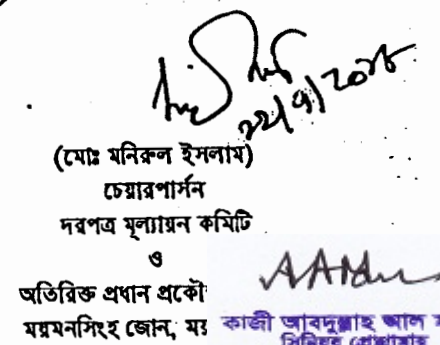 (মোঃ মনিরুল ইসলাম)
চেয়ারপার্সন
দরপত্র মূল্যায়ন কমিটি
ও
অতিরিক্ত প্রধান প্রকৌ
ময়মনসিংহ জোন, ময়
কাজী আবদুল্লাহ আল
সিনিয়র